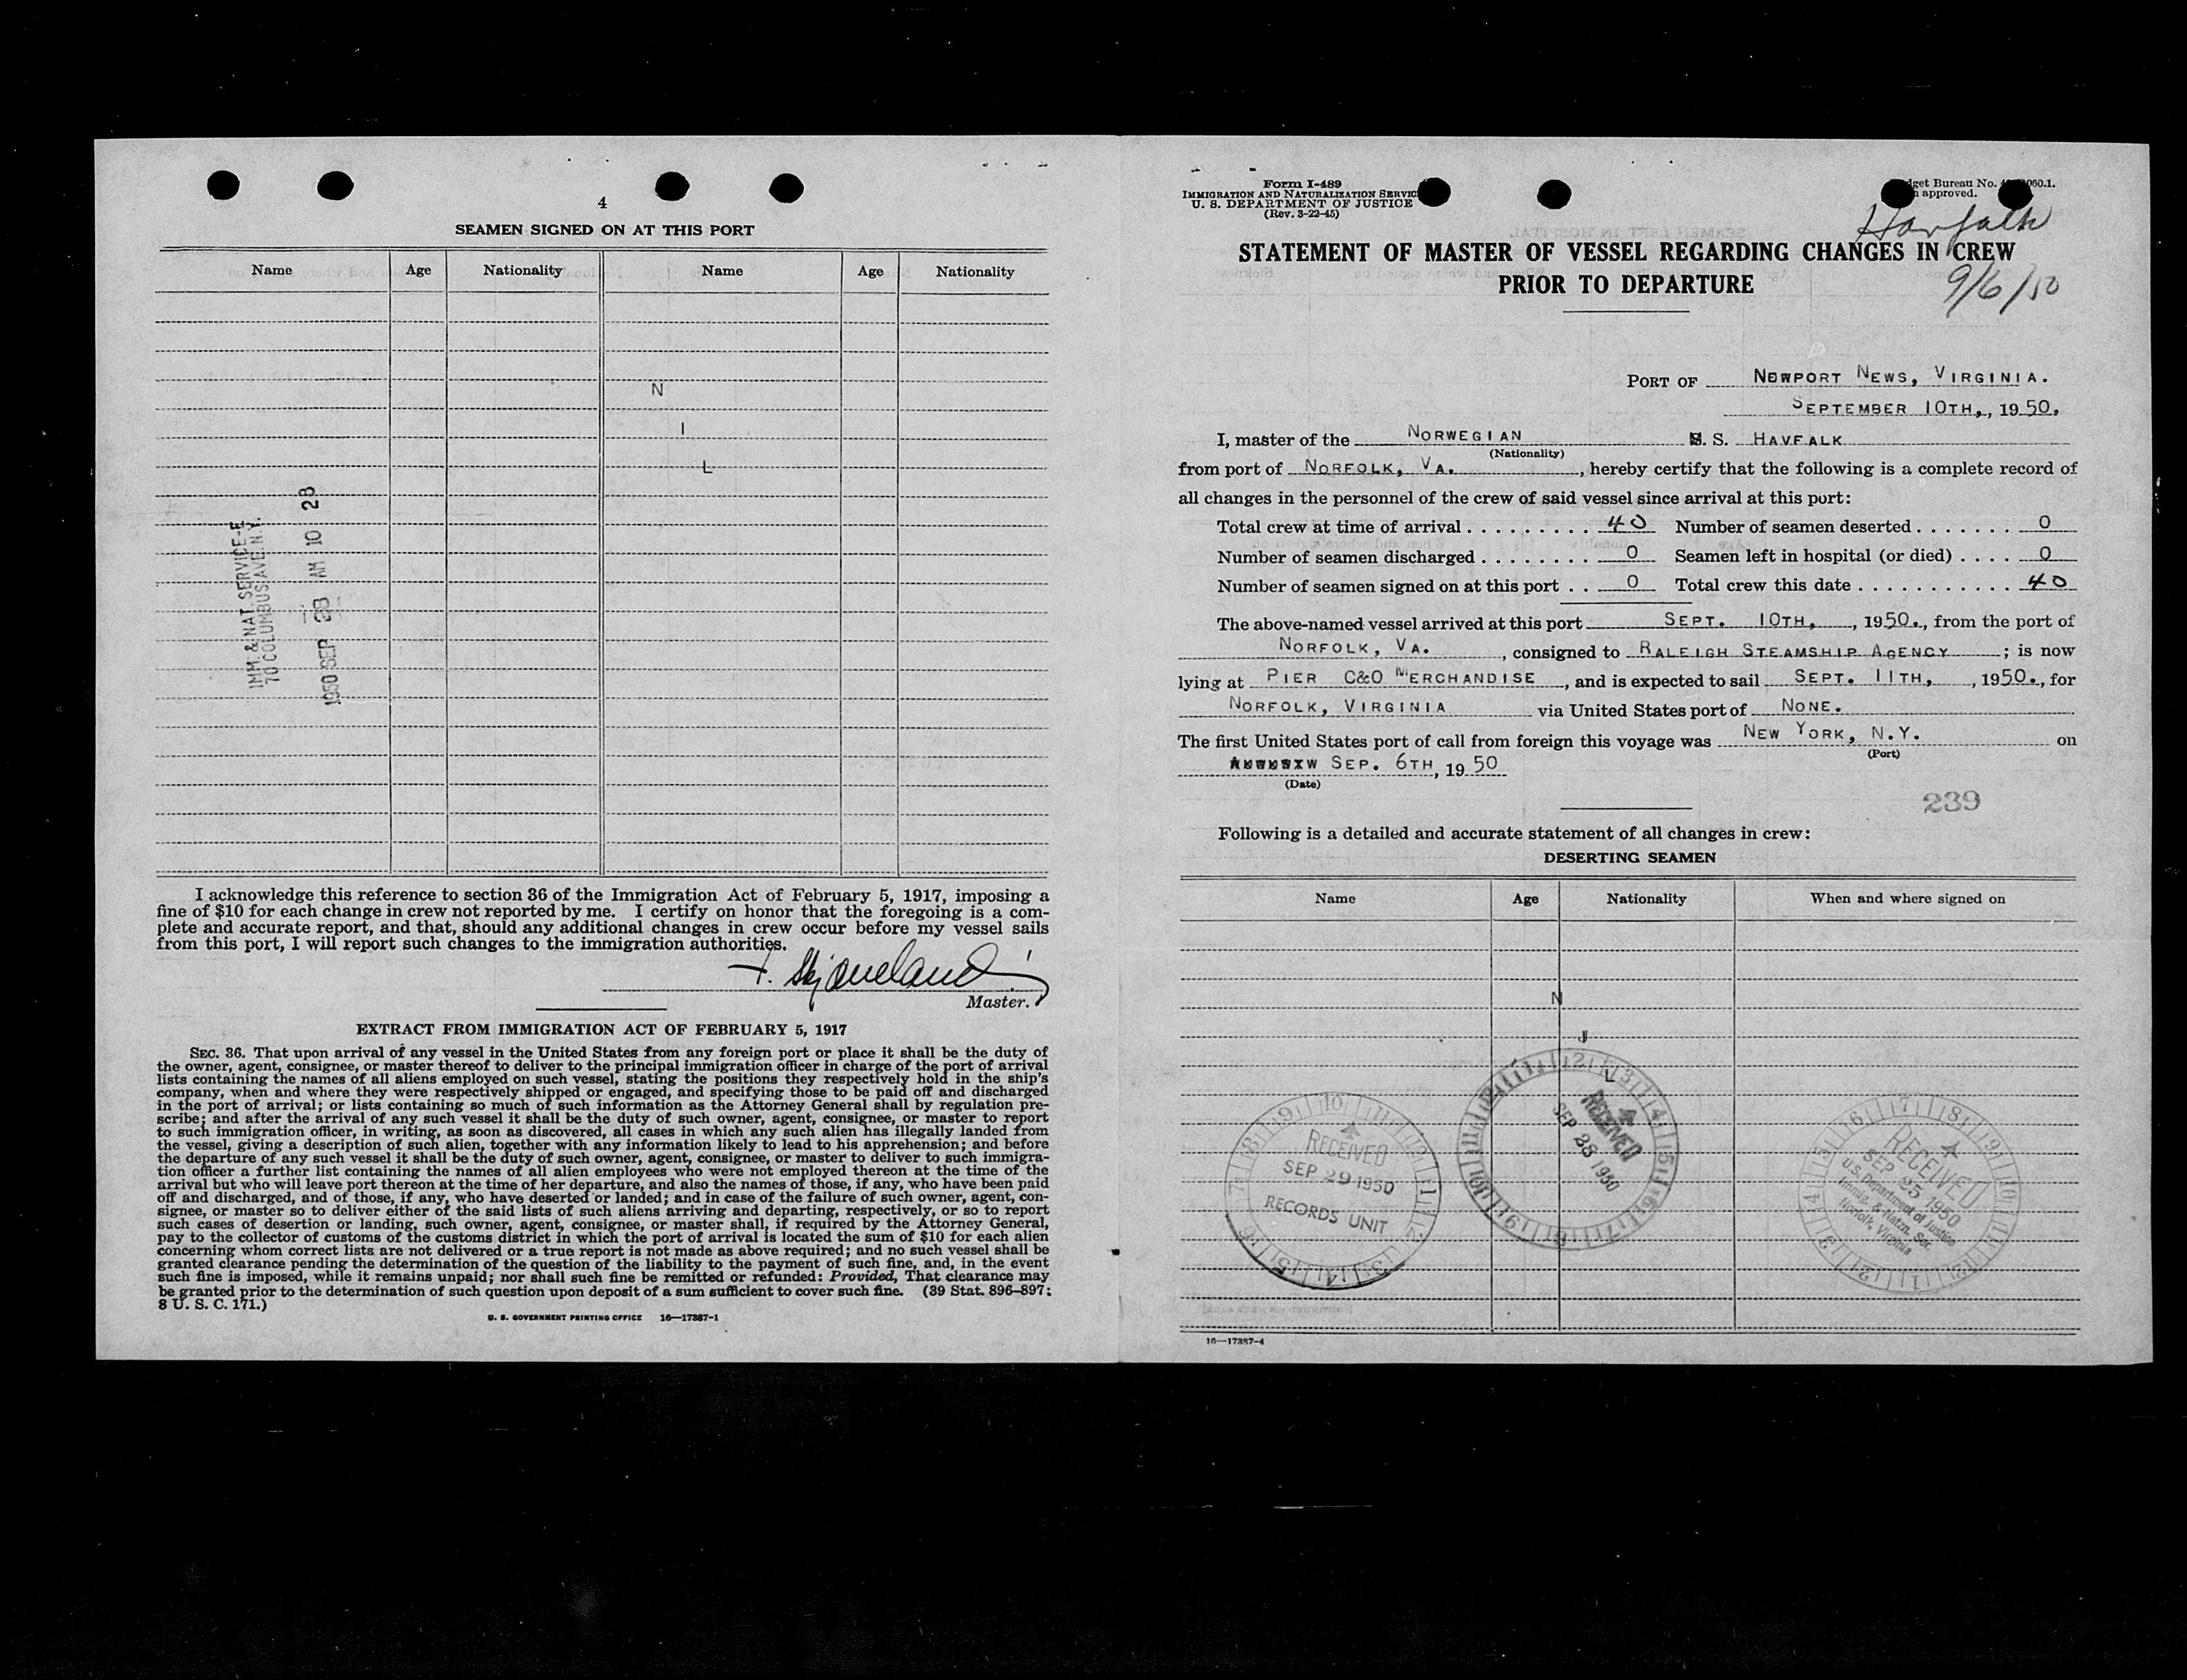 4
SEAMEN SIGNED ON AT THIS PORT
Name Age Nationality Name Age Nationality
N
I
L
IMM. & NAT. SERVICE-E
70 COLUMBUS AVE. N.Y.
1950 SEP 28 AM 10 28
I acknowledge this reference to section 36 of the Immigration Act of February 5, 1917, imposing a
fine of $10 for each change in crew not reported by me. I certify on honor that the foregoing is a com-
plete and accurate report, and that, should any additional changes in crew occur before my vessel sails
from this port, I will report such changes to the immigration authorities.
Master.
EXTRACT FROM IMMIGRATION ACT OF FEBRUARY 5, 1917
SEC. 36. That upon arrival of any vessel in the United States from any foreign port or place it shall be the duty of
the owner, agent, consignee, or master thereof to deliver to the principal immigration officer in charge of the port of arrival
lists containing the names of all aliens employed on such vessel, stating the positions they respectively hold in the ship's
company, when and where they were respectively shipped or engaged, and specifying those to be paid off and discharged
in the port of arrival; or lists containing so much of such information as the Attorney General shall by regulation pre-
scribe; and after the arrival of any such vessel it shall be the duty of such owner, agent, consignee, or master to report
to such immigration officer, in writing, as soon as discovered, all cases in which any such alien has illegally landed from
the vessel, giving a description of such alien, together with any information likely to lead to his apprehension; and before
the departure of any such vessel it shall be the duty of such owner, agent, consignee, or master to deliver to such immigra-
tion officer a further list containing the names of all alien employees who were not employed thereon at the time of the
arrival but who will leave port thereon at the time of her departure, and also the names of those, if any, who have been paid
off and discharged, and of those, if any, who have deserted or landed; and in case of the failure of such owner, agent, con-
signee, or master so to deliver either of the said lists of such aliens arriving and departing, respectively, or so to report
such cases of desertion or landing, such owner, agent, consignee, or master shall, if required by the Attorney General,
pay to the collector of customs of the customs district in which the port of arrival is located the sum of $10 for each alien
concerning whom correct lists are not delivered or a true report is not made as above required; and no such vessel shall be
granted clearance pending the determination of the question of the liability to the payment of such fine, and, in the event
such fine is imposed, while it remains unpaid; nor shall such fine be remitted or refunded: Provided, That clearance may
be granted prior to the determination of such question upon deposit of a sum sufficient to cover such fine. (39 Stat. 896–897;
8 U. S. C. 171.)
U. S. GOVERNMENT PRINTING OFFICE 16—17387-1
Form I-489
IMMIGRATION AND NATURALIZATION SERVIC
U. S. DEPARTMENT OF JUSTICE
(Rev. 3-22-45)
get Bureau No. 060.1.
approved.
Havfalk
STATEMENT OF MASTER OF VESSEL REGARDING CHANGES IN CREW
PRIOR TO DEPARTURE
9/6/50
PORT OF NEWPORT NEWS, VIRGINIA.
SEPTEMBER 10TH., 1950.
I, master of the NORWEGIAN S. S. HAVFALK
(Nationality)
from port of NORFOLK, VA., hereby certify that the following is a complete record of
all changes in the personnel of the crew of said vessel since arrival at this port:
Total crew at time of arrival . . . . . . . . . 40 Number of seamen deserted . . . . . . . 0
Number of seamen discharged . . . . . . . . 0 Seamen left in hospital (or died) . . . . 0
Number of seamen signed on at this port . . 0 Total crew this date . . . . . . . . . . . 40
The above-named vessel arrived at this port SEPT. 10TH, , 1950., from the port of
NORFOLK, VA. , consigned to RALEIGH STEAMSHIP AGENCY ; is now
lying at PIER C&O MERCHANDISE , and is expected to sail SEPT. 11TH, , 1950., for
NORFOLK, VIRGINIA via United States port of NONE.
The first United States port of call from foreign this voyage was NEW YORK, N.Y. on
(Port)
SEP. 6TH, 19 50
(Date)
239
Following is a detailed and accurate statement of all changes in crew:
DESERTING SEAMEN
Name Age Nationality When and where signed on
N
I
L
RECEIVED
SEP 29 1950
RECORDS UNIT
RECEIVED
SEP 28 1950
RECEIVED
SEP 25 1950
U.S. Department of Justice
Immig. & Natzn. Ser.
Norfolk, Virginia
16—17387-4